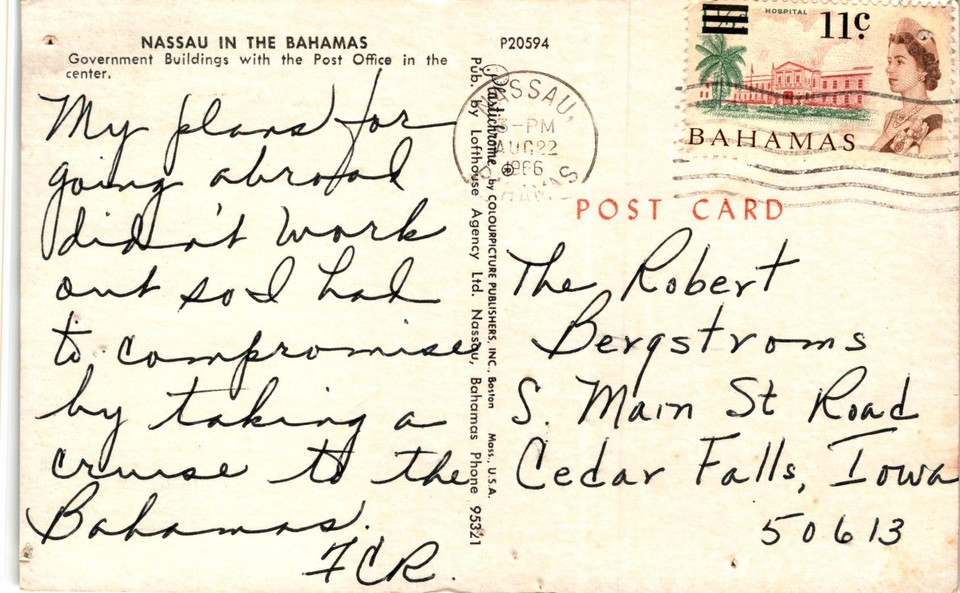 NASSAU IN THE BAHAMAS
Government Buildings with the Post Office in the
center.
My plans for
going abroad
didn't work
out so I had
to compromise
by taking a
cruise to the
Bahamas.
FCR.
P20594
Plastichrome by COLOURPICTURE PUBLISHERS, INC., Boston Mass., U.S.A.
Pub. by Lofthouse Agency Ltd. Nassau, Bahamas Phone 95321
NASSAU,
3-PM
AUG 22
1966
BAHAMAS
HOSPITAL
11c
BAHAMAS
POST CARD
The Robert
Bergstroms
S. Main St Road
Cedar Falls, Iowa
50613